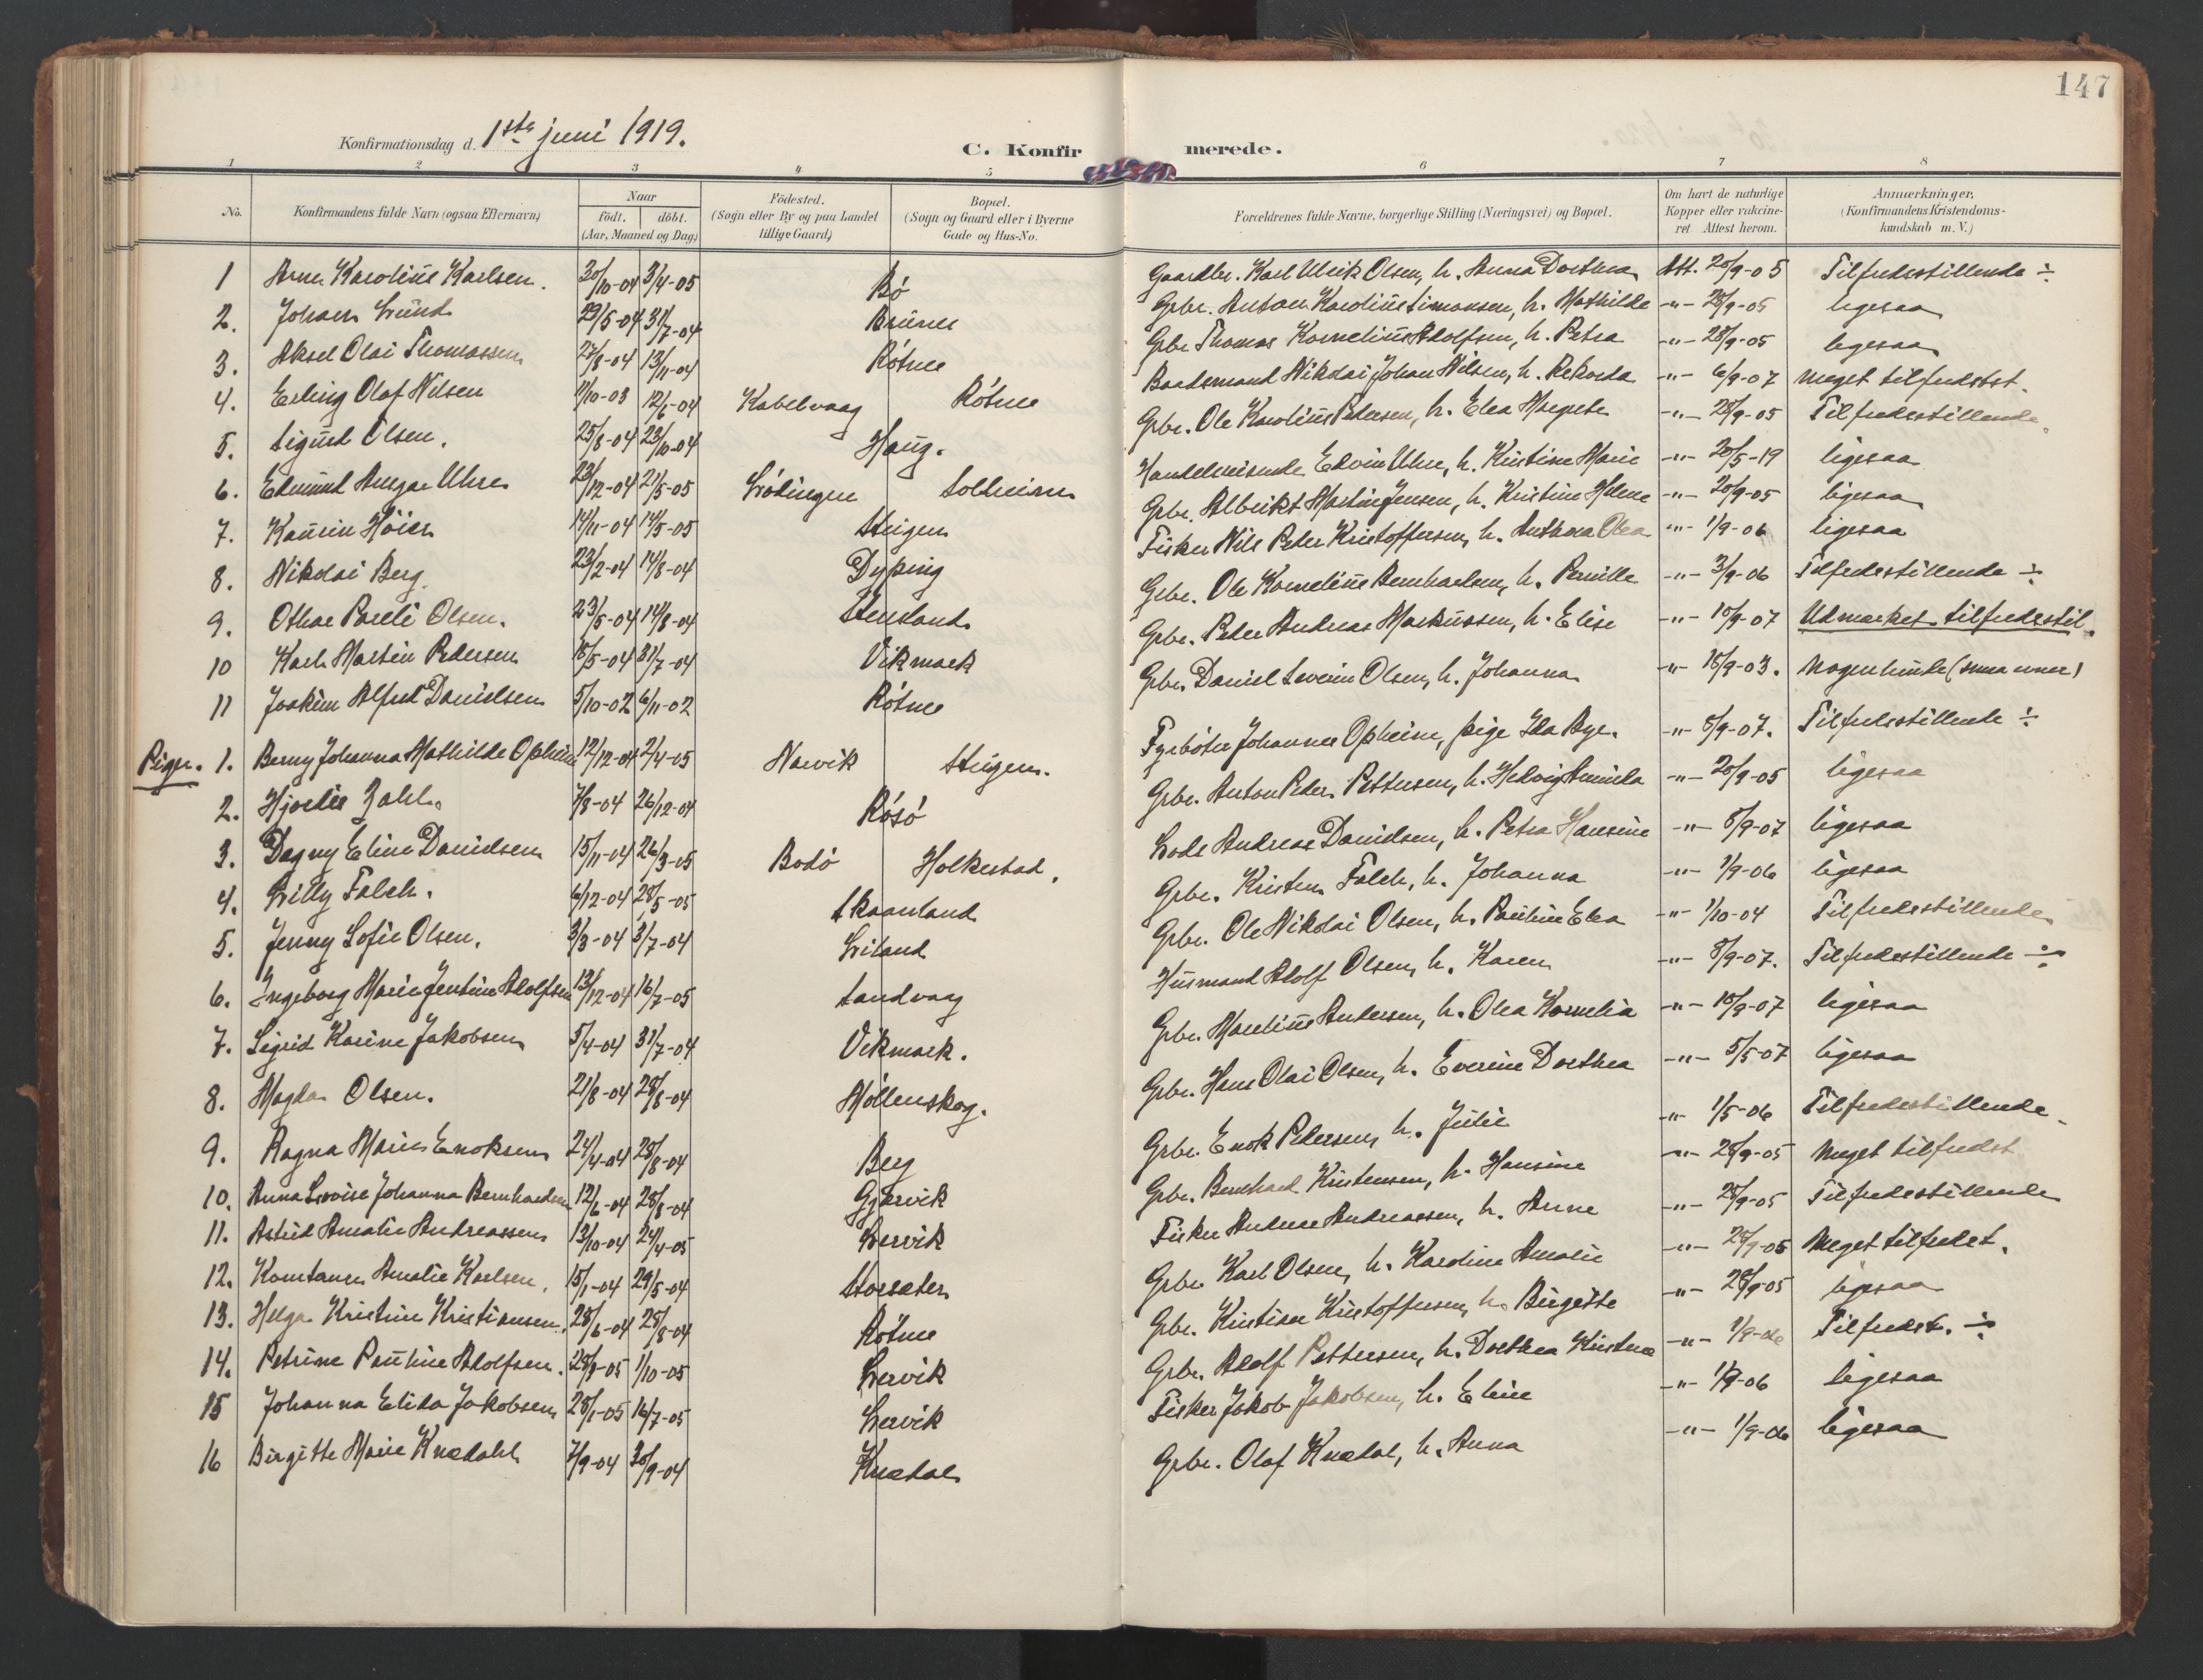 147
Konfirmationsdag d. 1ste juni 1919.
C. Konfirmerede.
1 2 3 4 5 6 7 8
No.
Konfirmandens fulde Navn (ogsaa Efternavn)
Naar
födt. döbt.
(Aar, Maaned og Dag)
Födested.
(Sogn eller By og paa Landet
tillige Gaard)
Bopæl.
(Sogn og Gaard eller i Byerne
Gade og Hus-No.
Forældrenes fulde Navne, borgerlige Stilling (Næringsvei) og Bopæl.
Om havt de naturlige
Kopper eller vakcine-
ret. Attest herom.
Anmærkninger.
(Konfirmandens Kristendoms-
kundskab m. V.)
1 Arne Karolius Karlsen. 30/10-04 3/4-05 Bö Gaardbr. Karl Ulrik Olsen, h. Anna Dorthea Att. 20/9-05 Tilfredsstillende ÷
2. Johan Lund 29/5-04 31/7-04 Brunes Grbr. Anton Karolius Simonsen, h. Mathilde -"- 28/9-05 ligesaa
3. Aksel Olai Thomassen 27/8-04 13/11-04 Rötnes Grbr Thomas Kornelius Adolfsen, h. Petra -"- 28/9-05 ligesaa
4. Erling Olaf Nilsen 11/10-03 12/6-04 Kabelvaag Rötnes Baadsmand Nikolai Johan Nilsen, h. Rekorda -"- 6/9-07 Meget tilfredsst.
5. Sigurd Olsen. 25/8-04 23/10-04 Haug. Grbr. Ole Karolius Pedersen, h. Elea Margrete -"- 28/9-05 Tilfredsstillende.
6. Edmund Ansgar Uhre 23/12-04 21/5-05 Lödingen Solheim Handelsreisende Edvin Uhre, h. Kristine Marie -"- 20/5-19 ligesaa
7. Kaurin Höier 14/11-04 14/5-05 Steigen Grbr. Albrikt Martin Jensen, h. Kristine Helene -"- 20/9-05 ligesaa
8. Nikolai Berg. 23/2-04 14/8-04 Dyping Fisker Nils Peder Kristoffersen, h. Anthora Olea -"- 1/9-06 ligesaa
9. Othar Pareli Olsen. 23/5-04 14/8-04 Stensland Grbr. Ole Kornelius Bernhardsen, h. Pernille -"- 3/9-06 Tilfredsstillende ÷
10 Karl Martin Pedersen 15/5-04 31/7-04 Vikmark Grbr. Peder Andreas Markussen, h. Elise -"- 10/9-07 Udmærket tilfredsstil.
11 Joakim Alfred Danielsen 5/10-02 6/11-02 Rötnes Grbr. Daniel Severin Olsen, h. Johanna -"- 15/9-03.
Piger. 1. Berny Johanna Mathilde Opheim 12/12-04 2/4-05 Narvik Steigen. Fyrböter Johannes Opheim, pige Ida Bye. -"- 8/9-07. Tilfredsstillende ÷
2. Hjørdis Zahl. 7/8-04 26/12-04 Rösö Grbr. Anton Peder Pettersen, h. Hedvig Aminda -"- 20/9-05 ligesaa
3. Dagny Eline Danielsen 15/11-04 26/3-05 Bodö Holkestad. Lods Andreas Danielsen, h. Petra Hansine -"- 8/9-07 ligesaa
4. Lilly Falch. 6/12-04 28/5-05 Skaanland Grbr. Kristen Falch, h. Johanna -"- 1/9-06 ligesaa
5. Jenny Sofie Olsen. 3/3-04 3/7-04 Liland Grbr. Ole Nikolai Olsen, h. Pauline Elea -"- 1/10-04 Tilfredsstillende
6. Ingeborg Marie Jentine Adolfsen 13/12-04 16/7-05 Sandvaag Husmand Adolf Olsen, h. Karen -"- 8/9-07. Tilfredsstillende ÷
7. Sigrid Karine Jakobsen 5/4-04 31/7-04 Vikmark. Grbr. Marelius Andersen, h. Olea Kornelia -"- 10/9-07 ligesaa
8. Magda Olsen. 21/8-04 28/8-04 Möllenskog. Grbr. Hans Olai Olsen, h. Everine Dorthea -"- 5/5-07 ligesaa
9. Ragna Marie Enoksen 24/4-04 28/8-04 Berg Grbr. Enok Pedersen, h. Julie -"- 1/5-06 Tilfredsstillende.
10. Anna Lovise Johanna Bernhardsen 12/6-04 28/8-04 Gjærvik Grbr. Bernhard Kristensen, h. Hansine -"- 28/9-05 Meget tilfredsst
11. Astrid Amalie Andreassen 13/10-04 24/4-05 Lervik Fisker Andreas Andreassen, h. Anne -"- 28/9-05 Tilfredsstillende
12. Konstanse Amalie Karlsen. 15/1-04 29/5-04 Storsæter Grbr. Karl Olsen, h. Karoline Amalie -"- 28/9-05 Meget tilfredst.
13. Helga Kristine Kristiansen. 28/6-04 28/8-04 Rötnes Grbr. Kristian Kristoffersen, h. Birgitte -"- 28/9-05 ligesaa
14. Petrine Pauline Adolfsen. 28/8-05 1/10-05 Lervik Grbr. Adolf Pettersen, h. Dorthea Kristine -"- 1/9-06 Tilfredst. ÷
15 Johanna Elida Jakobsen 28/1-05 16/7-05 Lervik Fisker Jakob Jakobsen, h. Eline -"- 1/9-06 ligesaa
16 Birgitte Marie Knædahl 7/9-04 30/9-04 Knædal Grbr. Olaf Knædal, h. Anna -"- 1/9-06 ligesaa